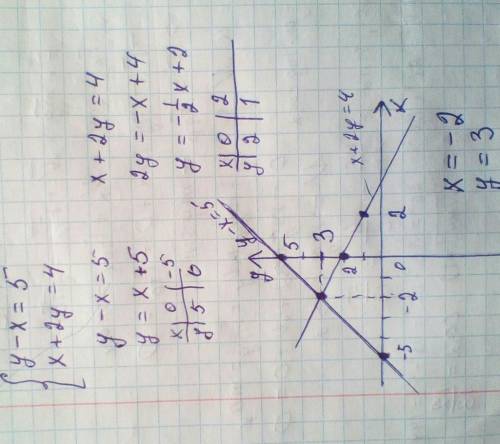 y - x = 5
x + 2y = 4
y - x = 5
y = x + 5
x | 0 | -5
y | 5 | 0
x + 2y = 4
2y = -x + 4
y = -1/2 x + 2
x | 0 | 2
y | 2 | 1
y - x = 5
y
5
3
2
x + 2y = 4
-5
-2
0
2
x
x = -2
y = 3